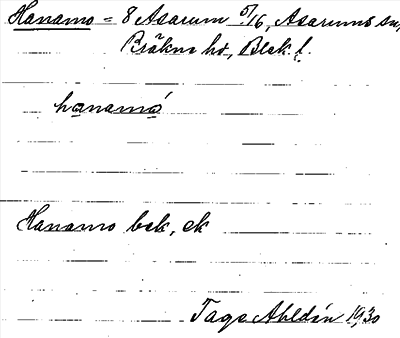 Hanamo = 8 Asarum 5/16, Asarums sn,
Bräkne hd, Blek. l.
hanamó
Hanamo bek, ek
Tage Ahldén 1930